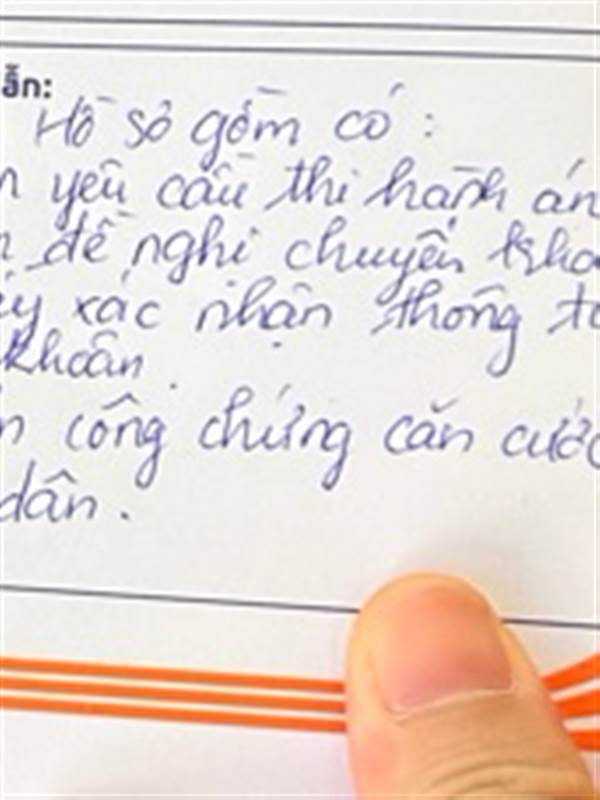 ẫn:
Hồ sơ gồm có :
n yêu cầu thi hành án
n đề nghị chuyển kho
ấy xác nhận thông t
khoản.
n công chứng căn cướ
dân.